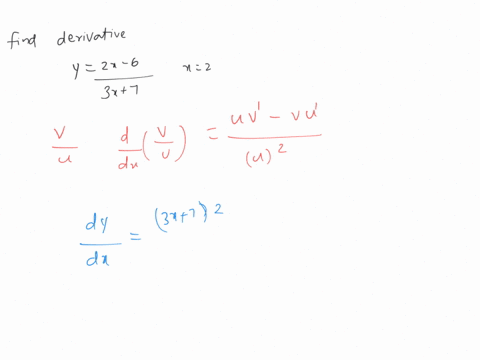 find derivative
y = (2x-6)/(3x+7) x=2
v/u d/dx (v/u) = (uv' - vu')/(u)²
dy/dx = (3x+7) 2